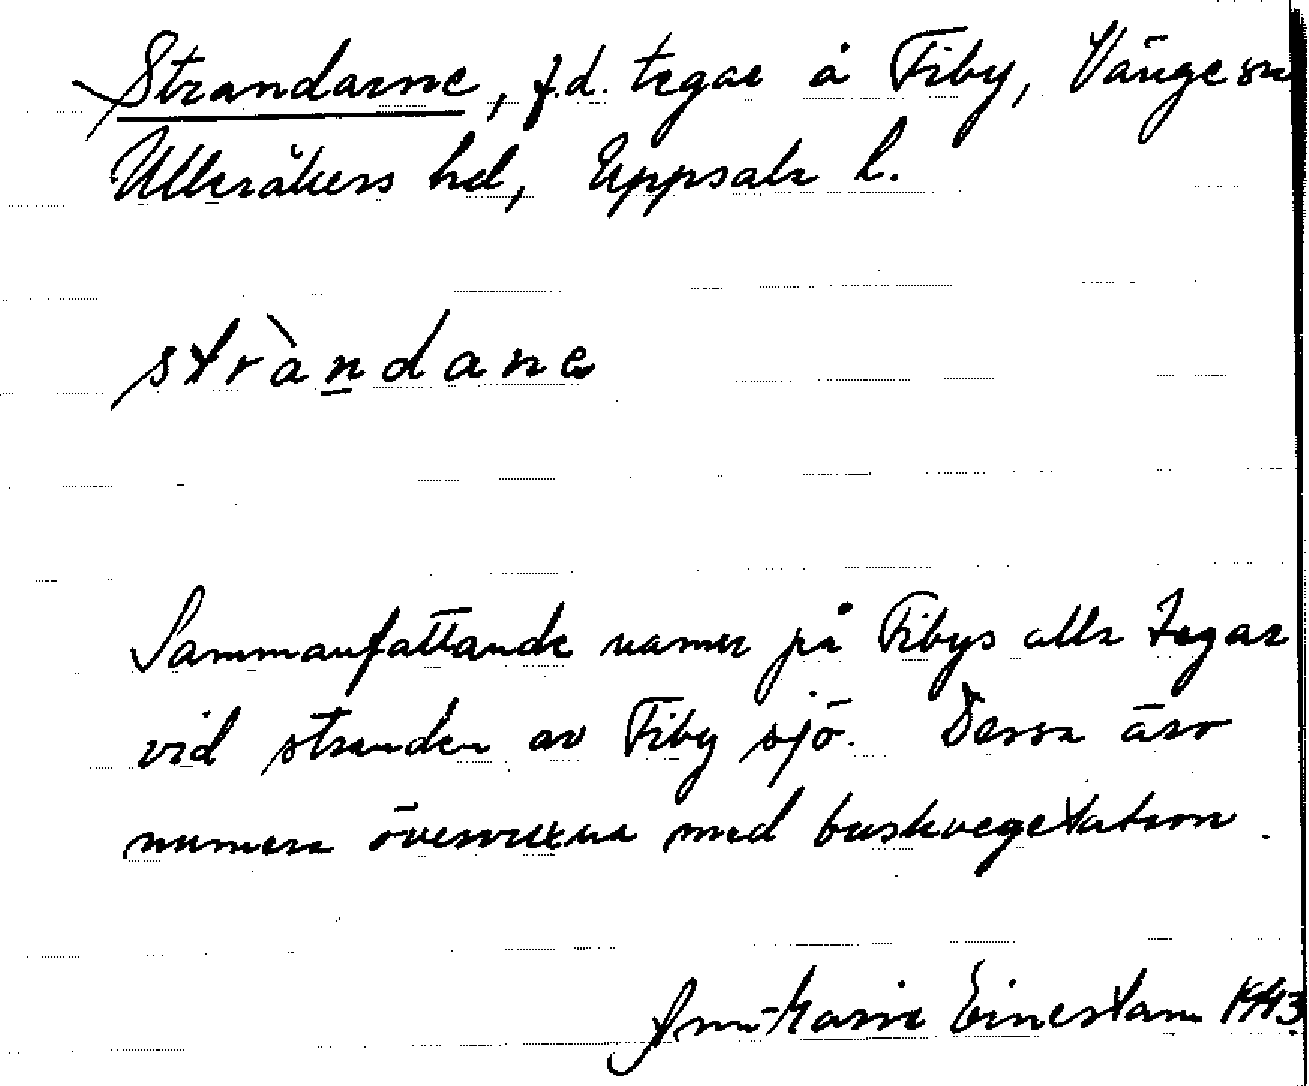 Strandarne, f.d. tegar å Fiby, Vänge sn
Ulleråkers hd, Uppsala l.
stràndane
Sammanfattande namn på Fibys alla tegar
vid stranden av Fiby sjö. Dessa äro
numera övervuxna med buskvegetation.
Ann-Marie Einerstam 1943